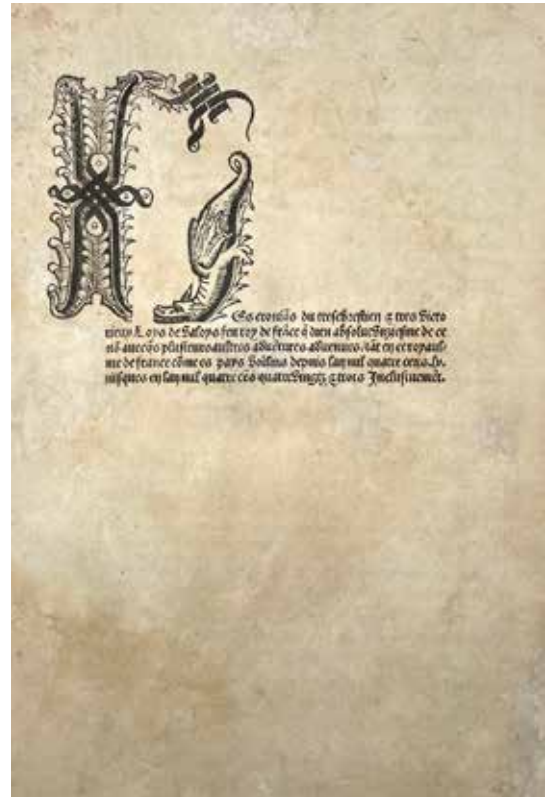 Les croniq̃s du treschrestien ⁊ tres victo
rieux Loys de valoys feu roy de frãce q̃ dieu absolue vnziesme de ce
nõ auecq̃s plusieurs aultres aduẽtures aduenues tãt en ce royaul-
me de france cõme es pays voisins depuis lan mil quatre cens.lx.
iusques en lan mil quatre cẽs quatre vingtz ⁊ trois Inclusiuemẽt.